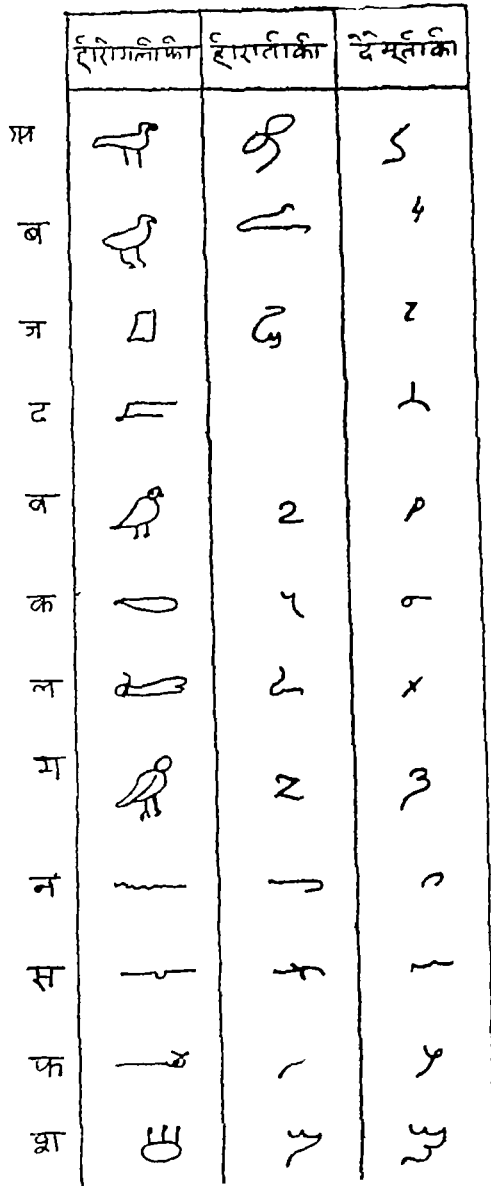 हीरोगलीफी हीरातीकी देमूतीकी
अ
ब
ज
द
व
क
ल
म
न
स
फ
श